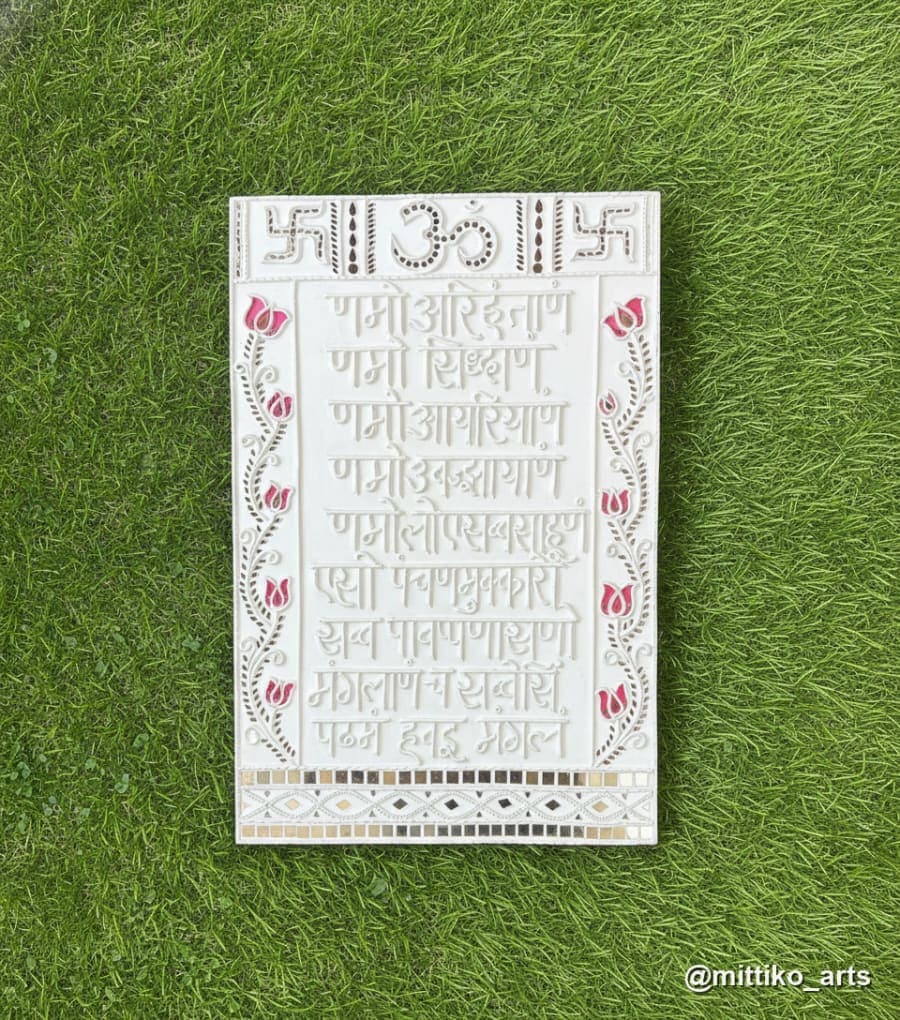 ॐ
णमो अरिहंताणं
णमो सिध्दाणं
णमो आयरियाणं
णमो उवज्झायाणं
णमो लोए सव्व साहूणं
एसो पंचणमुक्कारो
सव्व पावप्पणासणो
मंगलाणं च सव्वेसिं
पढमं हवइ मंगलं
@mittiko_arts